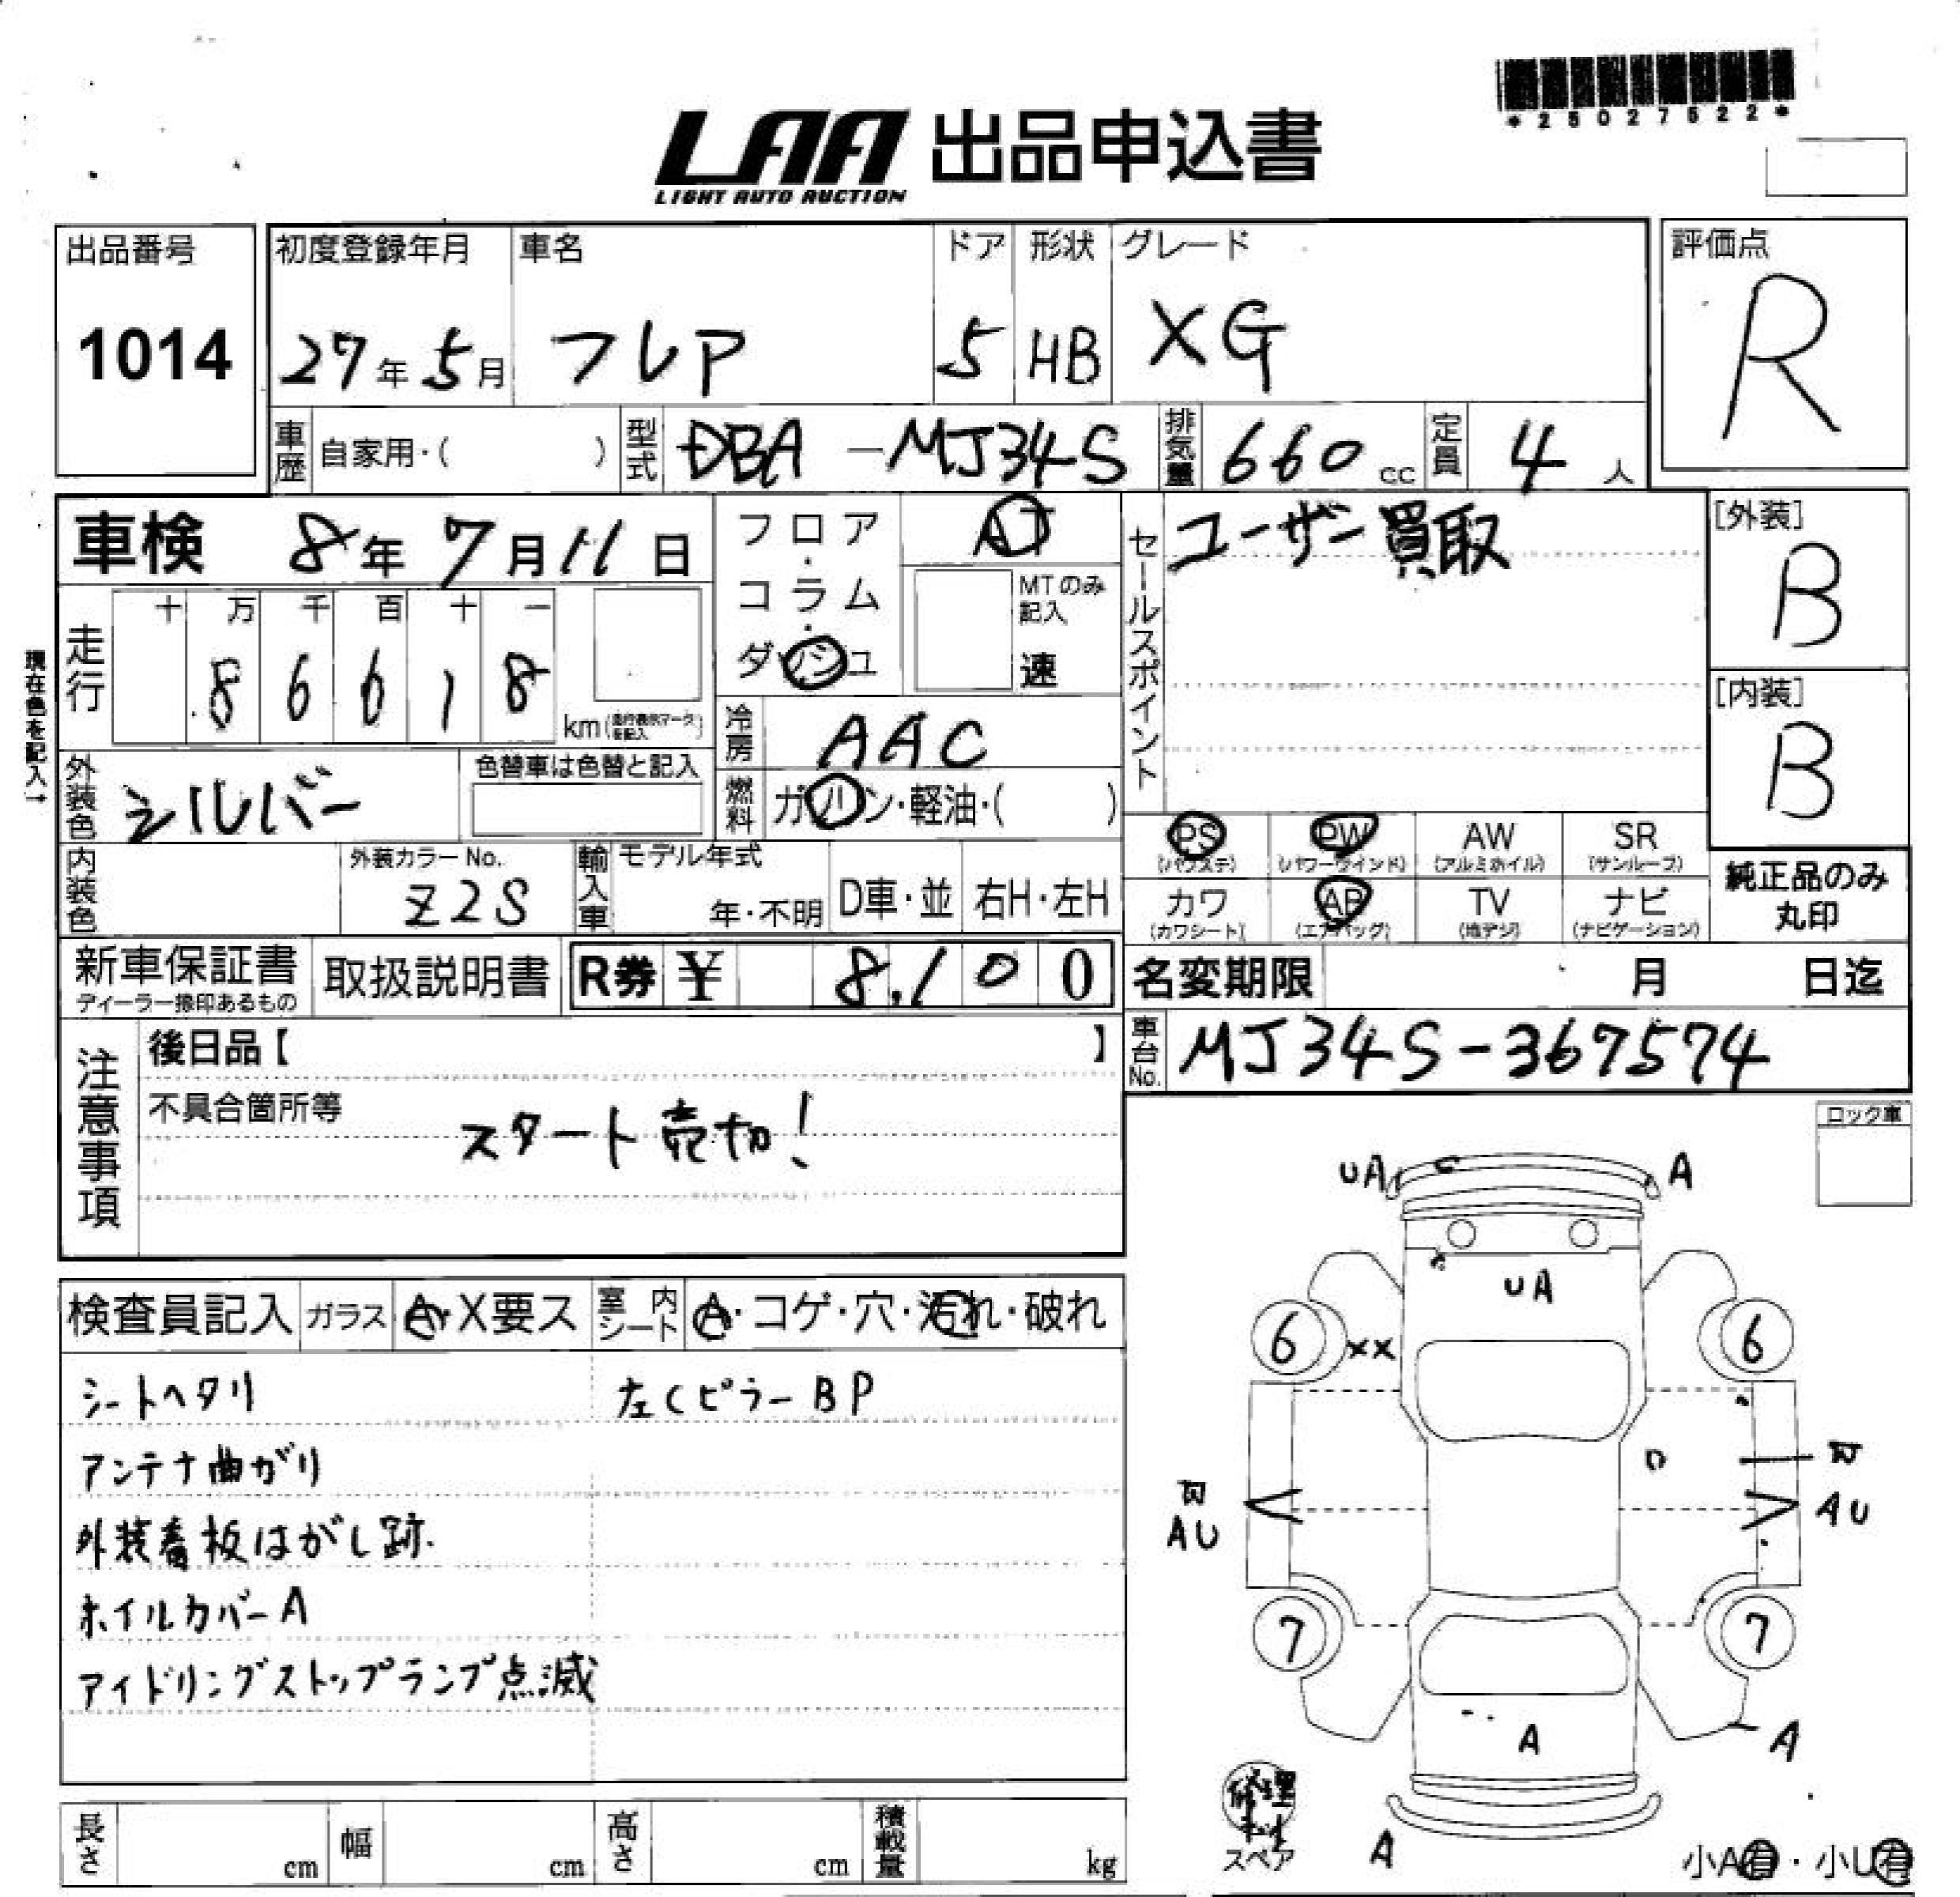 *25027522*
LAA 出品申込書
LIGHT AUTO AUCTION
出品番号
1014
初度登録年月
27年5月
車名
フレア
ドア
5
形状
HB
グレード
XG
評価点
R
車歴 自家用・( )
型式 DBA-MJ34S
排気量 660cc
定員 4人
車検 8年7月11日
フロア・コラム・ダッシュ
AT
MTのみ記入
速
セールスポイント
ユーザー買取
[外装]
B
[内装]
B
現在色を記入→
走行
十 万 千 百 十 一
8 6 6 1 8
km(走行表示マークを記入)
冷房 AAC
燃料 ガソリン・軽油・( )
外装色 シルバー
色替車は色替と記入
内装色
外装カラーNo.
Z2S
輸入車
モデル年式
年・不明
D車・並
右H・左H
PS (パワステ)
PW (パワーウインド)
AW (アルミホイル)
SR (サンルーフ)
カワ (カワシート)
AB (エアバッグ)
TV (地デジ)
ナビ (ナビゲーション)
純正品のみ
丸印
新車保証書
ディーラー捺印あるもの
取扱説明書
R券 ¥ 8,100
名変期限 月 日迄
車台No. MJ34S-367574
注意事項
後日品【 】
不具合箇所等
スタート売切!
ロック車
検査員記入
ガラス A・X要ス
室内シート A・コゲ・穴・汚れ・破れ
シートヘタリ
左Cピラー BP
アンテナ曲がり
外装看板はがし跡
ホイルカバーA
アイドリングストップランプ点滅
UA
A
UA
6
XX
6
AU
AU
7
7
A
A
A
修理キット
スペア
小A有・小U有
長さ cm
幅 cm
高さ cm
積載量 kg